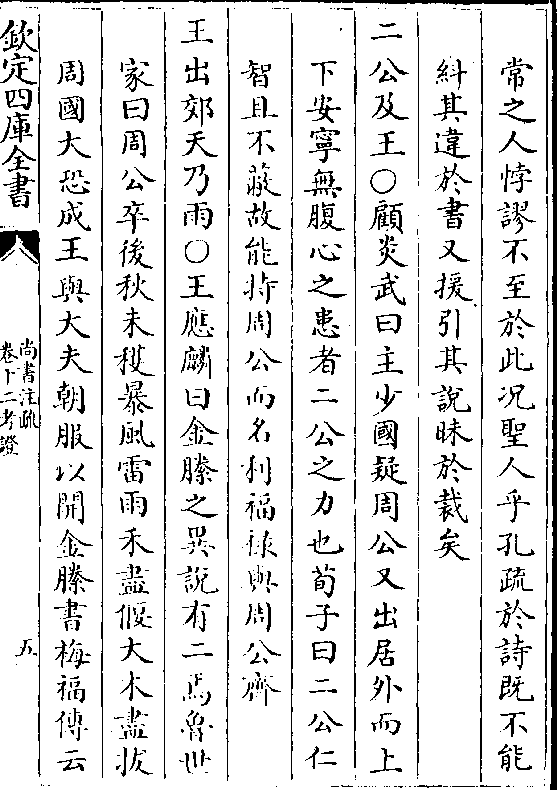 常之人悖謬不至於此况聖人乎孔疏於詩既不能
糾其違於書又援引其說昧於裁矣
二公及王○顧炎武曰主少國疑周公又出居外而上
下安寧無腹心之患者二公之力也荀子曰二公仁
智且不蔽故能持周公而名利福祿與周公齊
王出郊天乃雨○王應麟曰金縢之異說有二焉魯世
家曰周公卒後秋未穫暴風雷雨禾盡偃大木盡拔
周國大恐成王與大夫朝服以開金縢書梅福傳云
欽定四庫全書
尚書注疏
卷十二考證
五